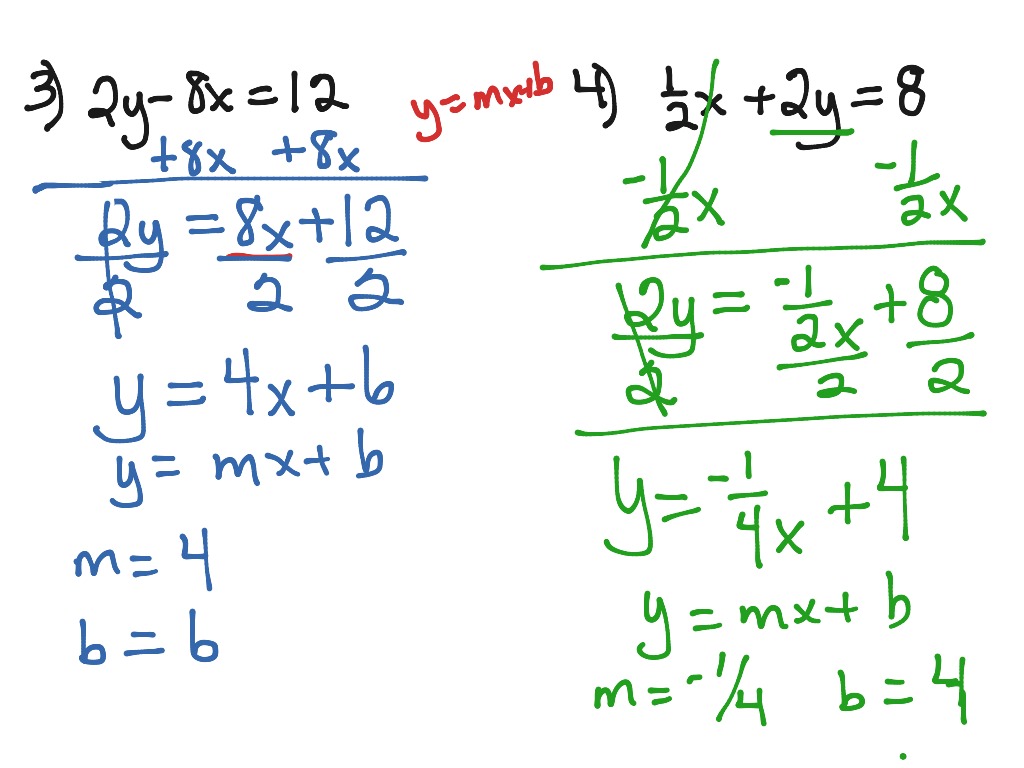 3) 2y - 8x = 12
+8x +8x
2y = 8x + 12
2 2 2
y = 4x + 6
y = mx + b
m = 4
b = 6
y = mx + b
4) 1/2 x + 2y = 8
-1/2 x -1/2 x
2y = -1/2x + 8
2 2 2
y = -1/4x + 4
y = mx + b
m = -1/4 b = 4